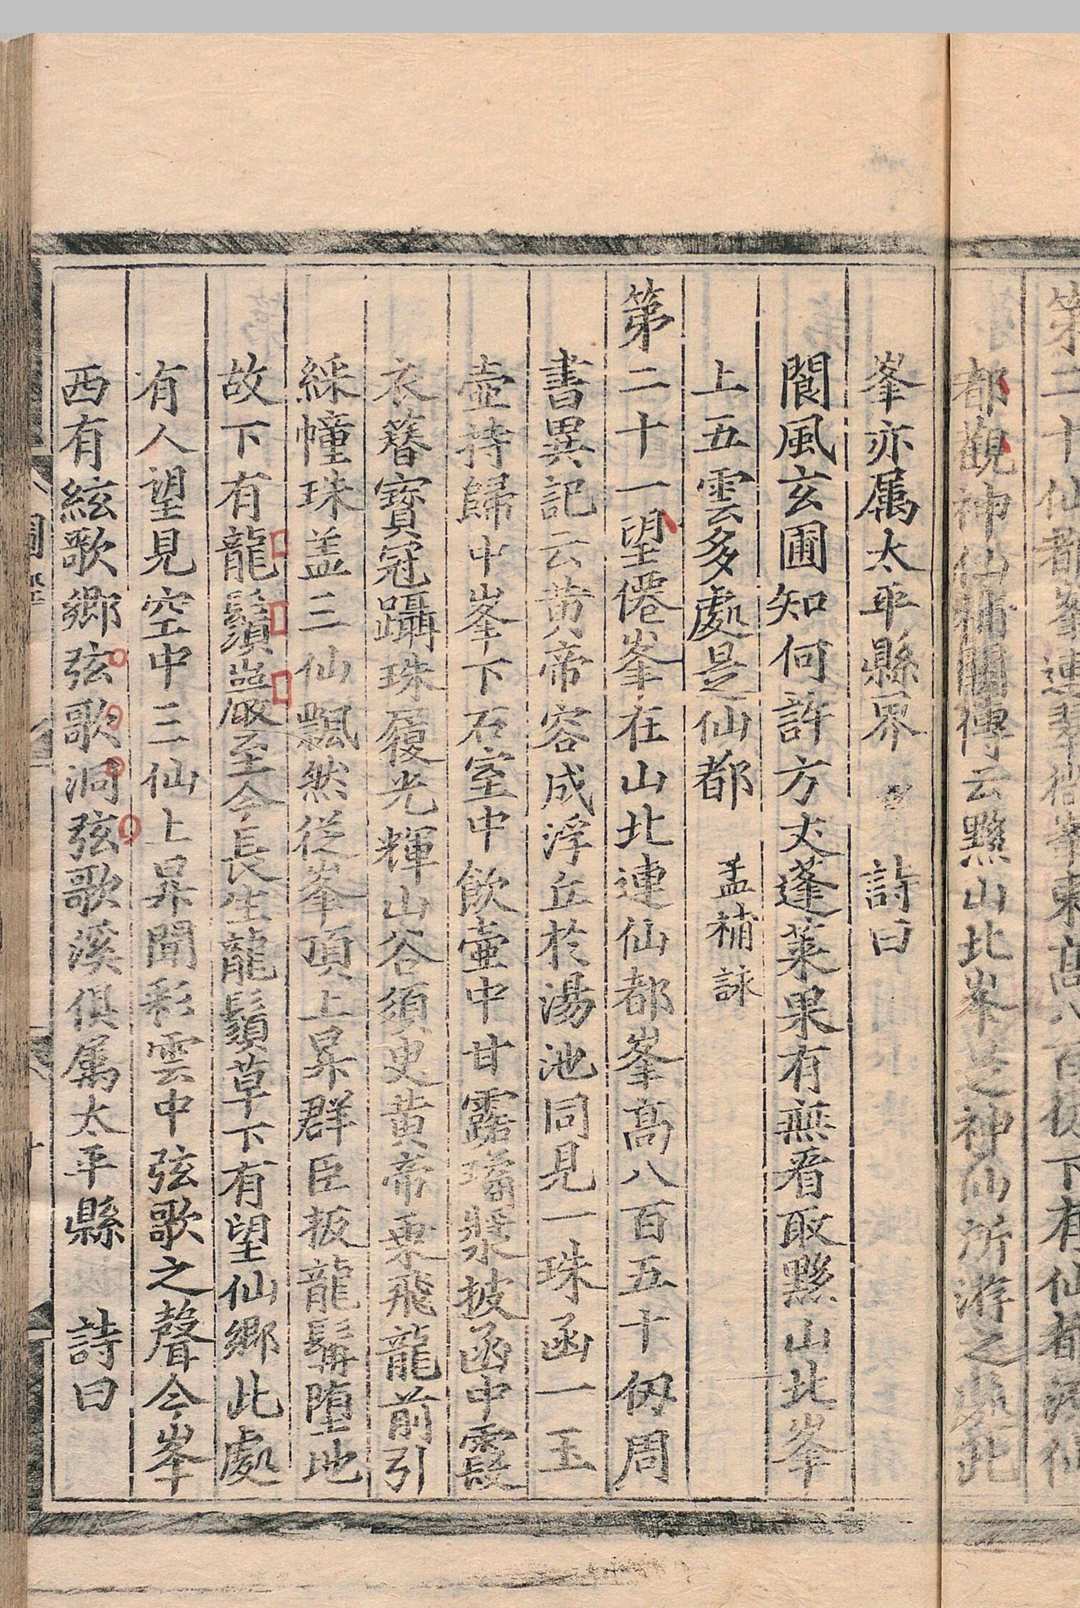 第二十仙都峯連翠微峯東高八百仞下有仙都源仙
都觀神仙補闕傳云黟山北峯芝神仙所游之處此
峯亦属太平縣界　詩曰
閬風玄圃知何許方丈蓬莱果有無看取黟山北峯
上五雲多處是仙都　孟補詠
第二十一望僊峯在山北連仙都峯高八百五十仞周
書異記云黄帝容成浮丘於湯池同見一珠函一玉
壺持歸中峯下石室中飲壷中甘露瓊漿披函中霞
衣簮寳冠躡珠履光輝山谷須臾黄帝乘飛龍前引
綵幢珠盖三仙飄然從峯頂上昇群臣扳龍髯堕地
故下有龍鬚巖至今長生龍鬚草下有望仙鄉此處
有人望見空中三仙上昇聞彩雲中弦歌之聲今峯
西有絃歌鄉弦歌洞弦歌溪俱属太平縣　詩曰